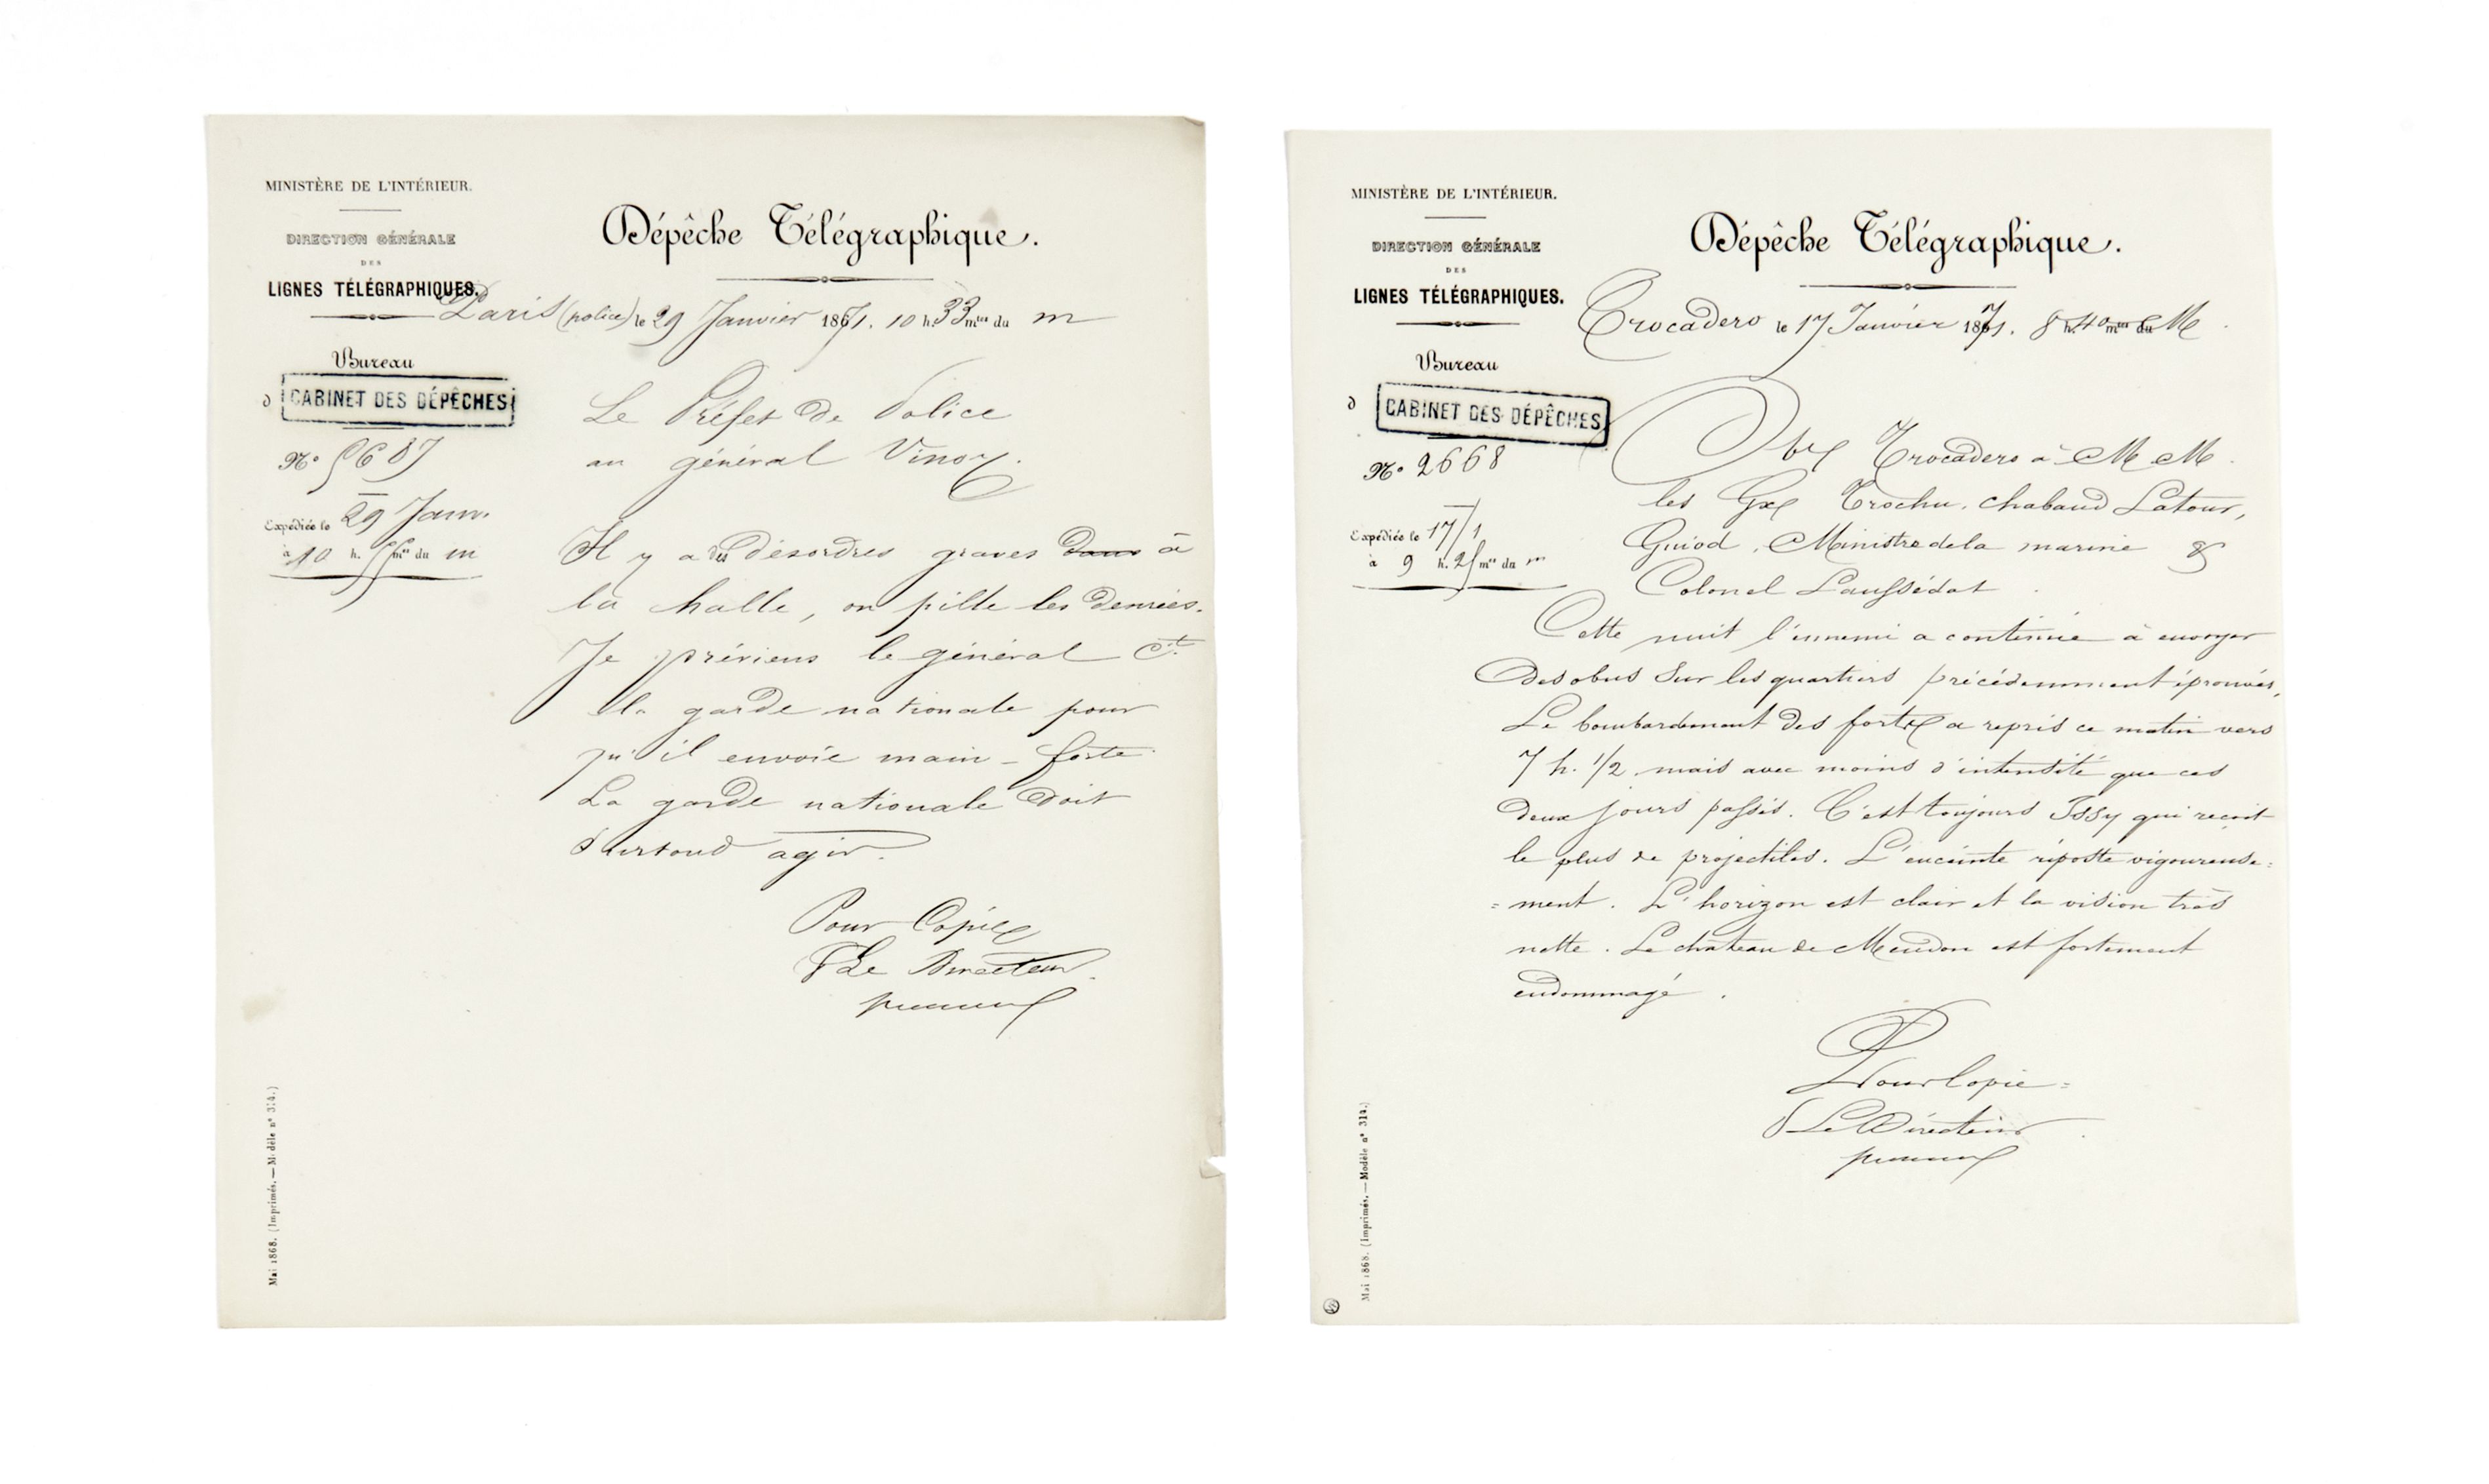 MINISTÈRE DE L'INTÉRIEUR.
DIRECTION GÉNÉRALE
DES
LIGNES TÉLÉGRAPHIQUES.
Dépêche Télégraphique.
Paris (police) le 29 Janvier 1871. 10 h. 33 mes du m
Bureau
d CABINET DES DÉPÊCHES
N° 5687
Expédiée le 29 Janv.
à 10 h. 55 mes du m
Le Préfet de Police
au général Vinoy.
Il y a des désordres graves dans à
la halle, on pille les denrées.
Je préviens le général Ct
la garde nationale pour
qu'il envoie main-forte
La garde nationale doit
surtout agir.
Pour Copie
Le Directeur
Mai 1868. (Imprimés. — Modèle n° 314.)
MINISTÈRE DE L'INTÉRIEUR.
DIRECTION GÉNÉRALE
DES
LIGNES TÉLÉGRAPHIQUES.
Dépêche Télégraphique.
Trocadero le 17 Janvier 1871. 8 h. 40 mes du M
Bureau
d CABINET DES DÉPÊCHES
N° 2668
Expédiée le 17/1
à 9 h. 25 mes du m
Obs Trocadero à M M
les Gx Trochu, chabaud Latour,
Guiod, Ministre de la marine &
Colonel Laussédat
Cette nuit l'ennemi a continué à envoyer
des obus sur les quartiers précédemment éprouvés,
Le bombardement des forts a repris ce matin vers
7 h. 1/2 mais avec moins d'intensité que ces
deux jours passés. C'est toujours Issy qui reçoit
le plus de projectiles. L'enceinte riposte vigoureuse=
=ment. L'horizon est clair et la vision très
nette. Le château de Meudon est fortement
endommagé.
Pour Copie=
Le Directeur
Mai 1868. (Imprimés. — Modèle n° 314.)